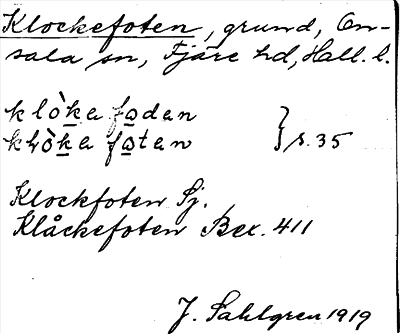 Klockefoten, grund, On-
sala sn, Fjäre hd, Hall. l.
klò̀ka fodan
klò̀ka fotan } s. 35
Klockfoten Sj.
Klåckefoten Bex. 411
J. Sahlgren 1919